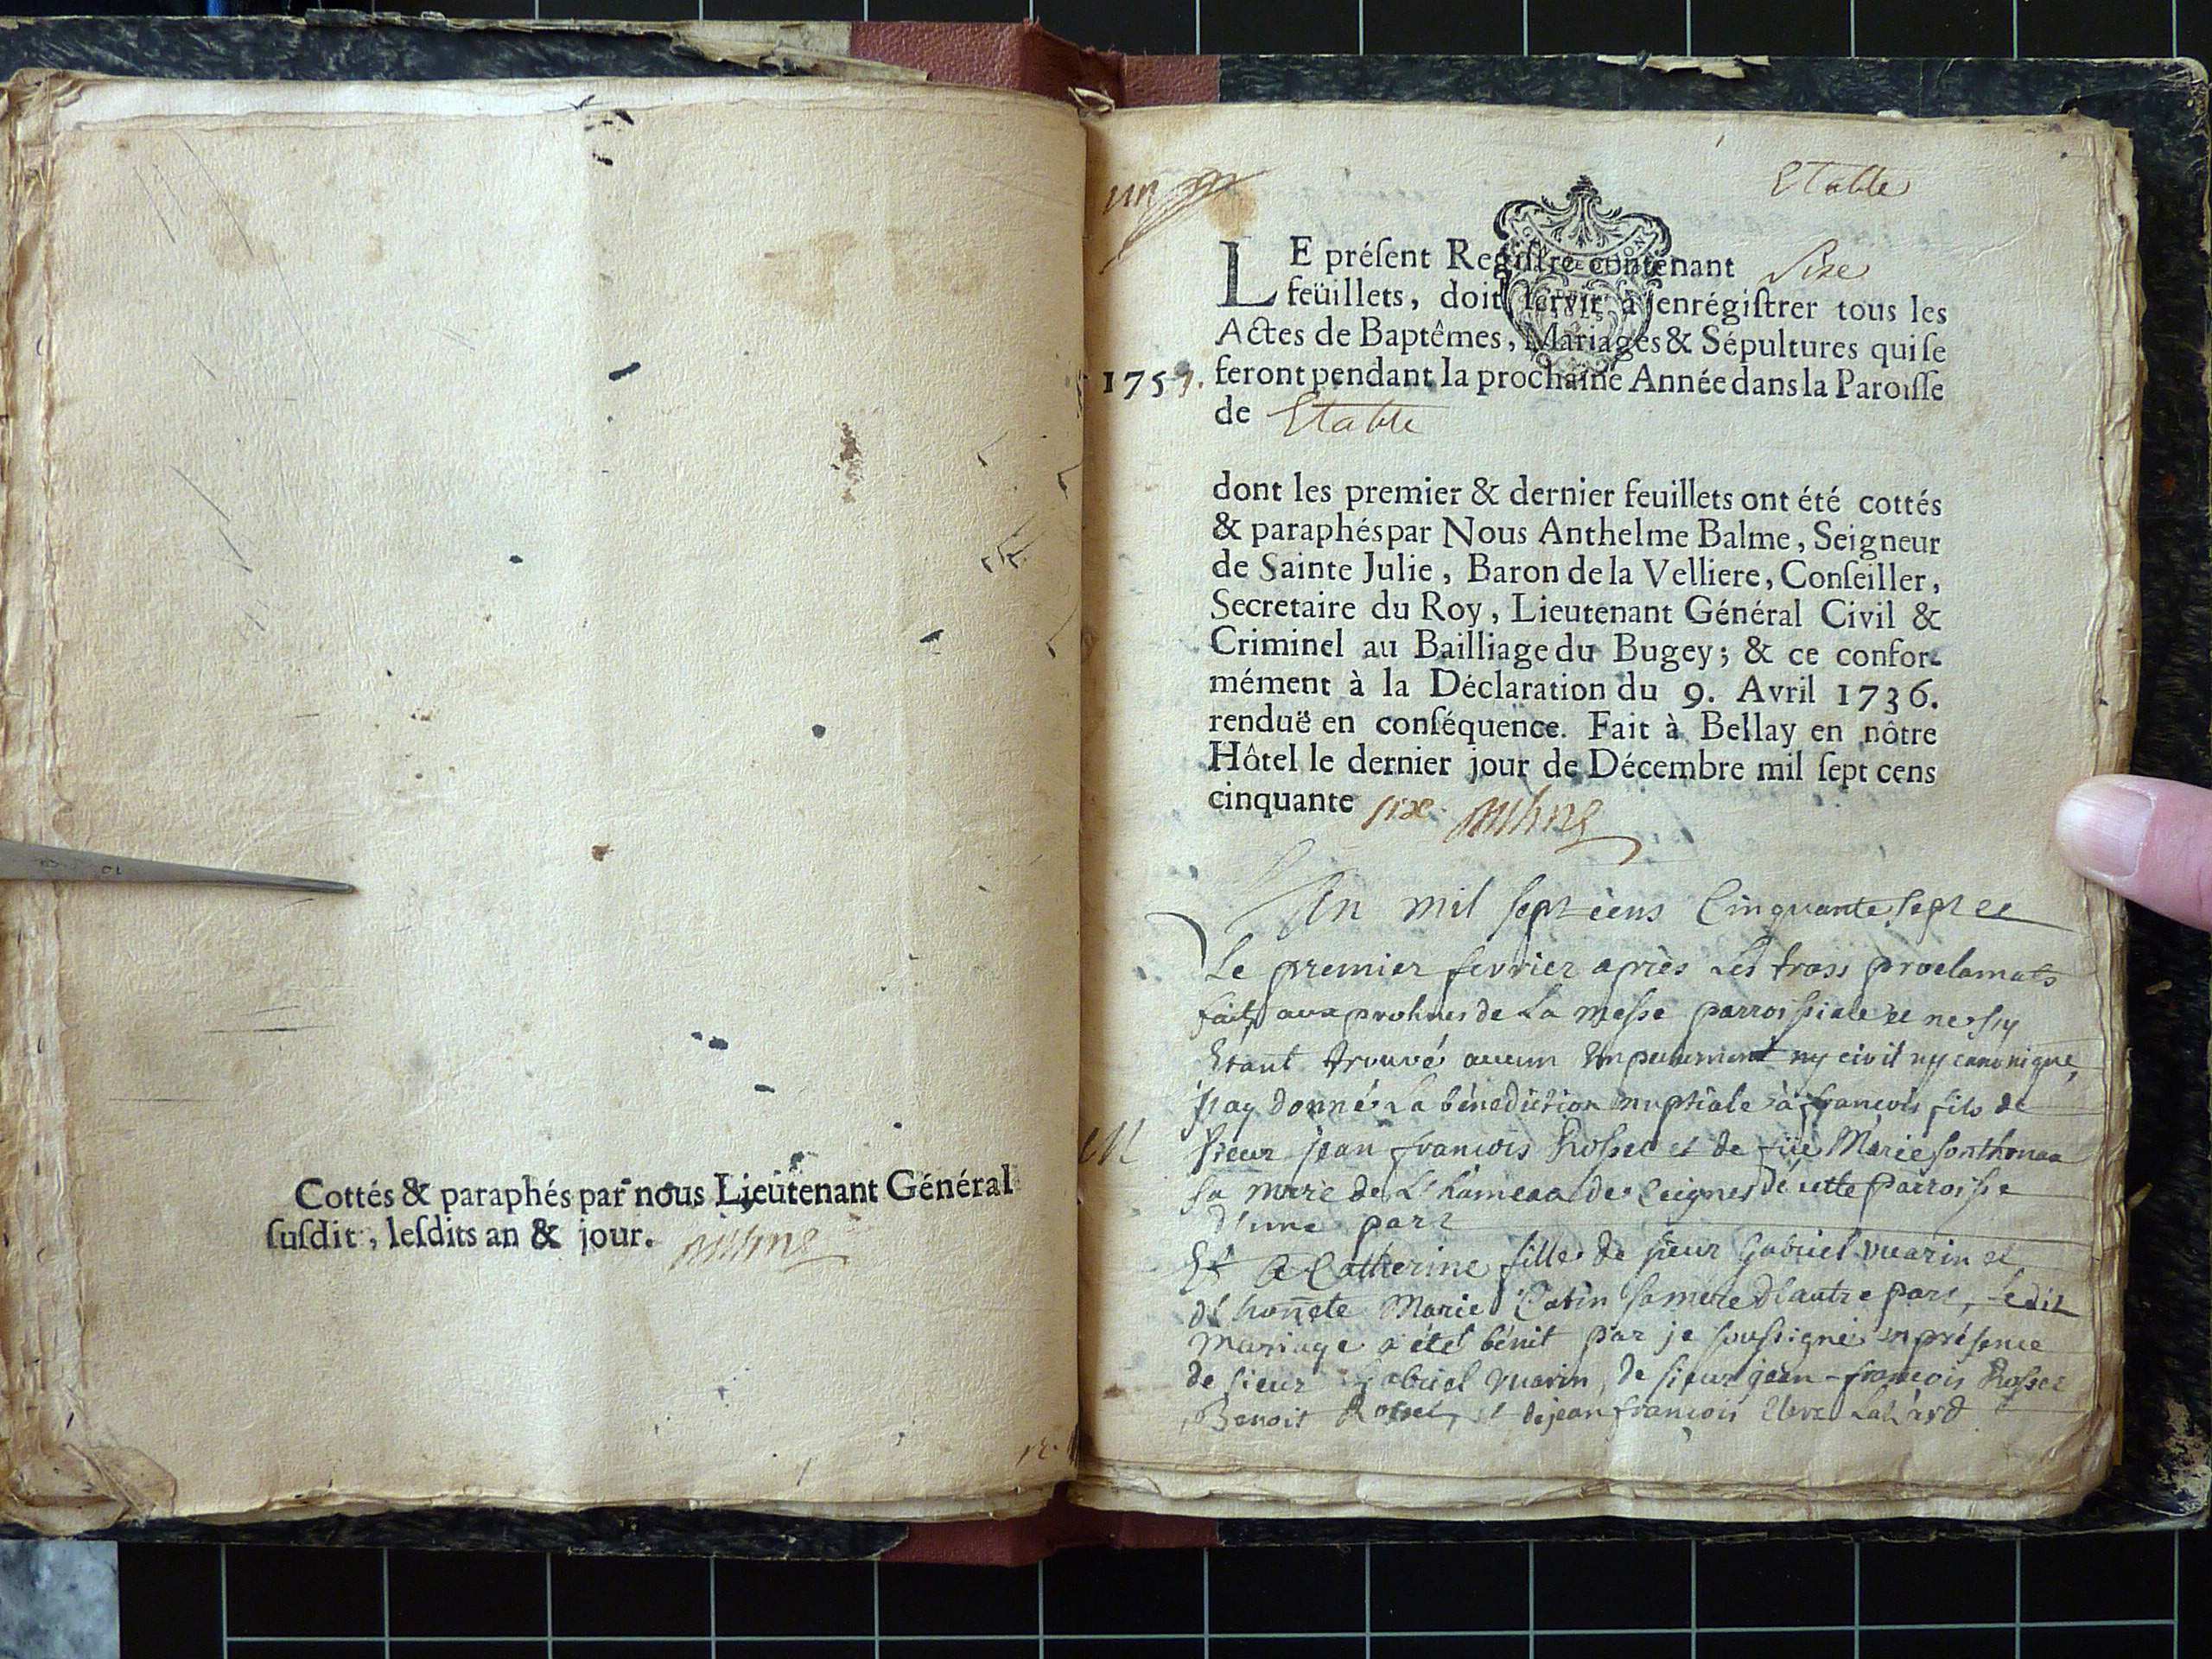 Cottés & paraphés par nous Lieutenant Général
ſuſdit, leſdits an & jour.
un
Etable
LE préſent Regiſtre contenant Sixe
feüillets, doit ſervir à enrégiſtrer tous les
Actes de Baptêmes, Mariages & Sépultures qui ſe
1757. feront pendant la prochaine Année dans la Paroiſſe
de Etable
dont les premier & dernier feuillets ont été cottés
& paraphés par Nous Anthelme Balme, Seigneur
de Sainte Julie, Baron de la Velliere, Conſeiller,
Secretaire du Roy, Lieutenant Général Civil &
Criminel au Bailliage du Bugey; & ce confor-
mément à la Déclaration du 9. Avril 1736.
renduë en conſéquence. Fait à Bellay en nôtre
Hôtel le dernier jour de Décembre mil ſept cens
cinquante six
An mil sept cens Cinquante sept et
Le premier fevrier après Les trois proclamats
fait aux prohnes de La messe parroissiale et ne s'y
Etant trouvé aucun Empechement ny civil ny canonique,
j'ay donné La bénediction nuptiale à francois fils de
sieur jean francois Rosset et de füe Marie Sonthonax
sa mere de L'hameau de Ceignes de cette Parroisse
d'une part
Et a Catherine fille de sieur Gabriel vuarin et
d'honnete Marie Catin sa mere d'autre part, Ledit
Mariage a été bénit par je soussigné en présence
de sieur Gabriel vuarin, de sieur jean-francois Rosset
Benoit Rosset, et de jean francois